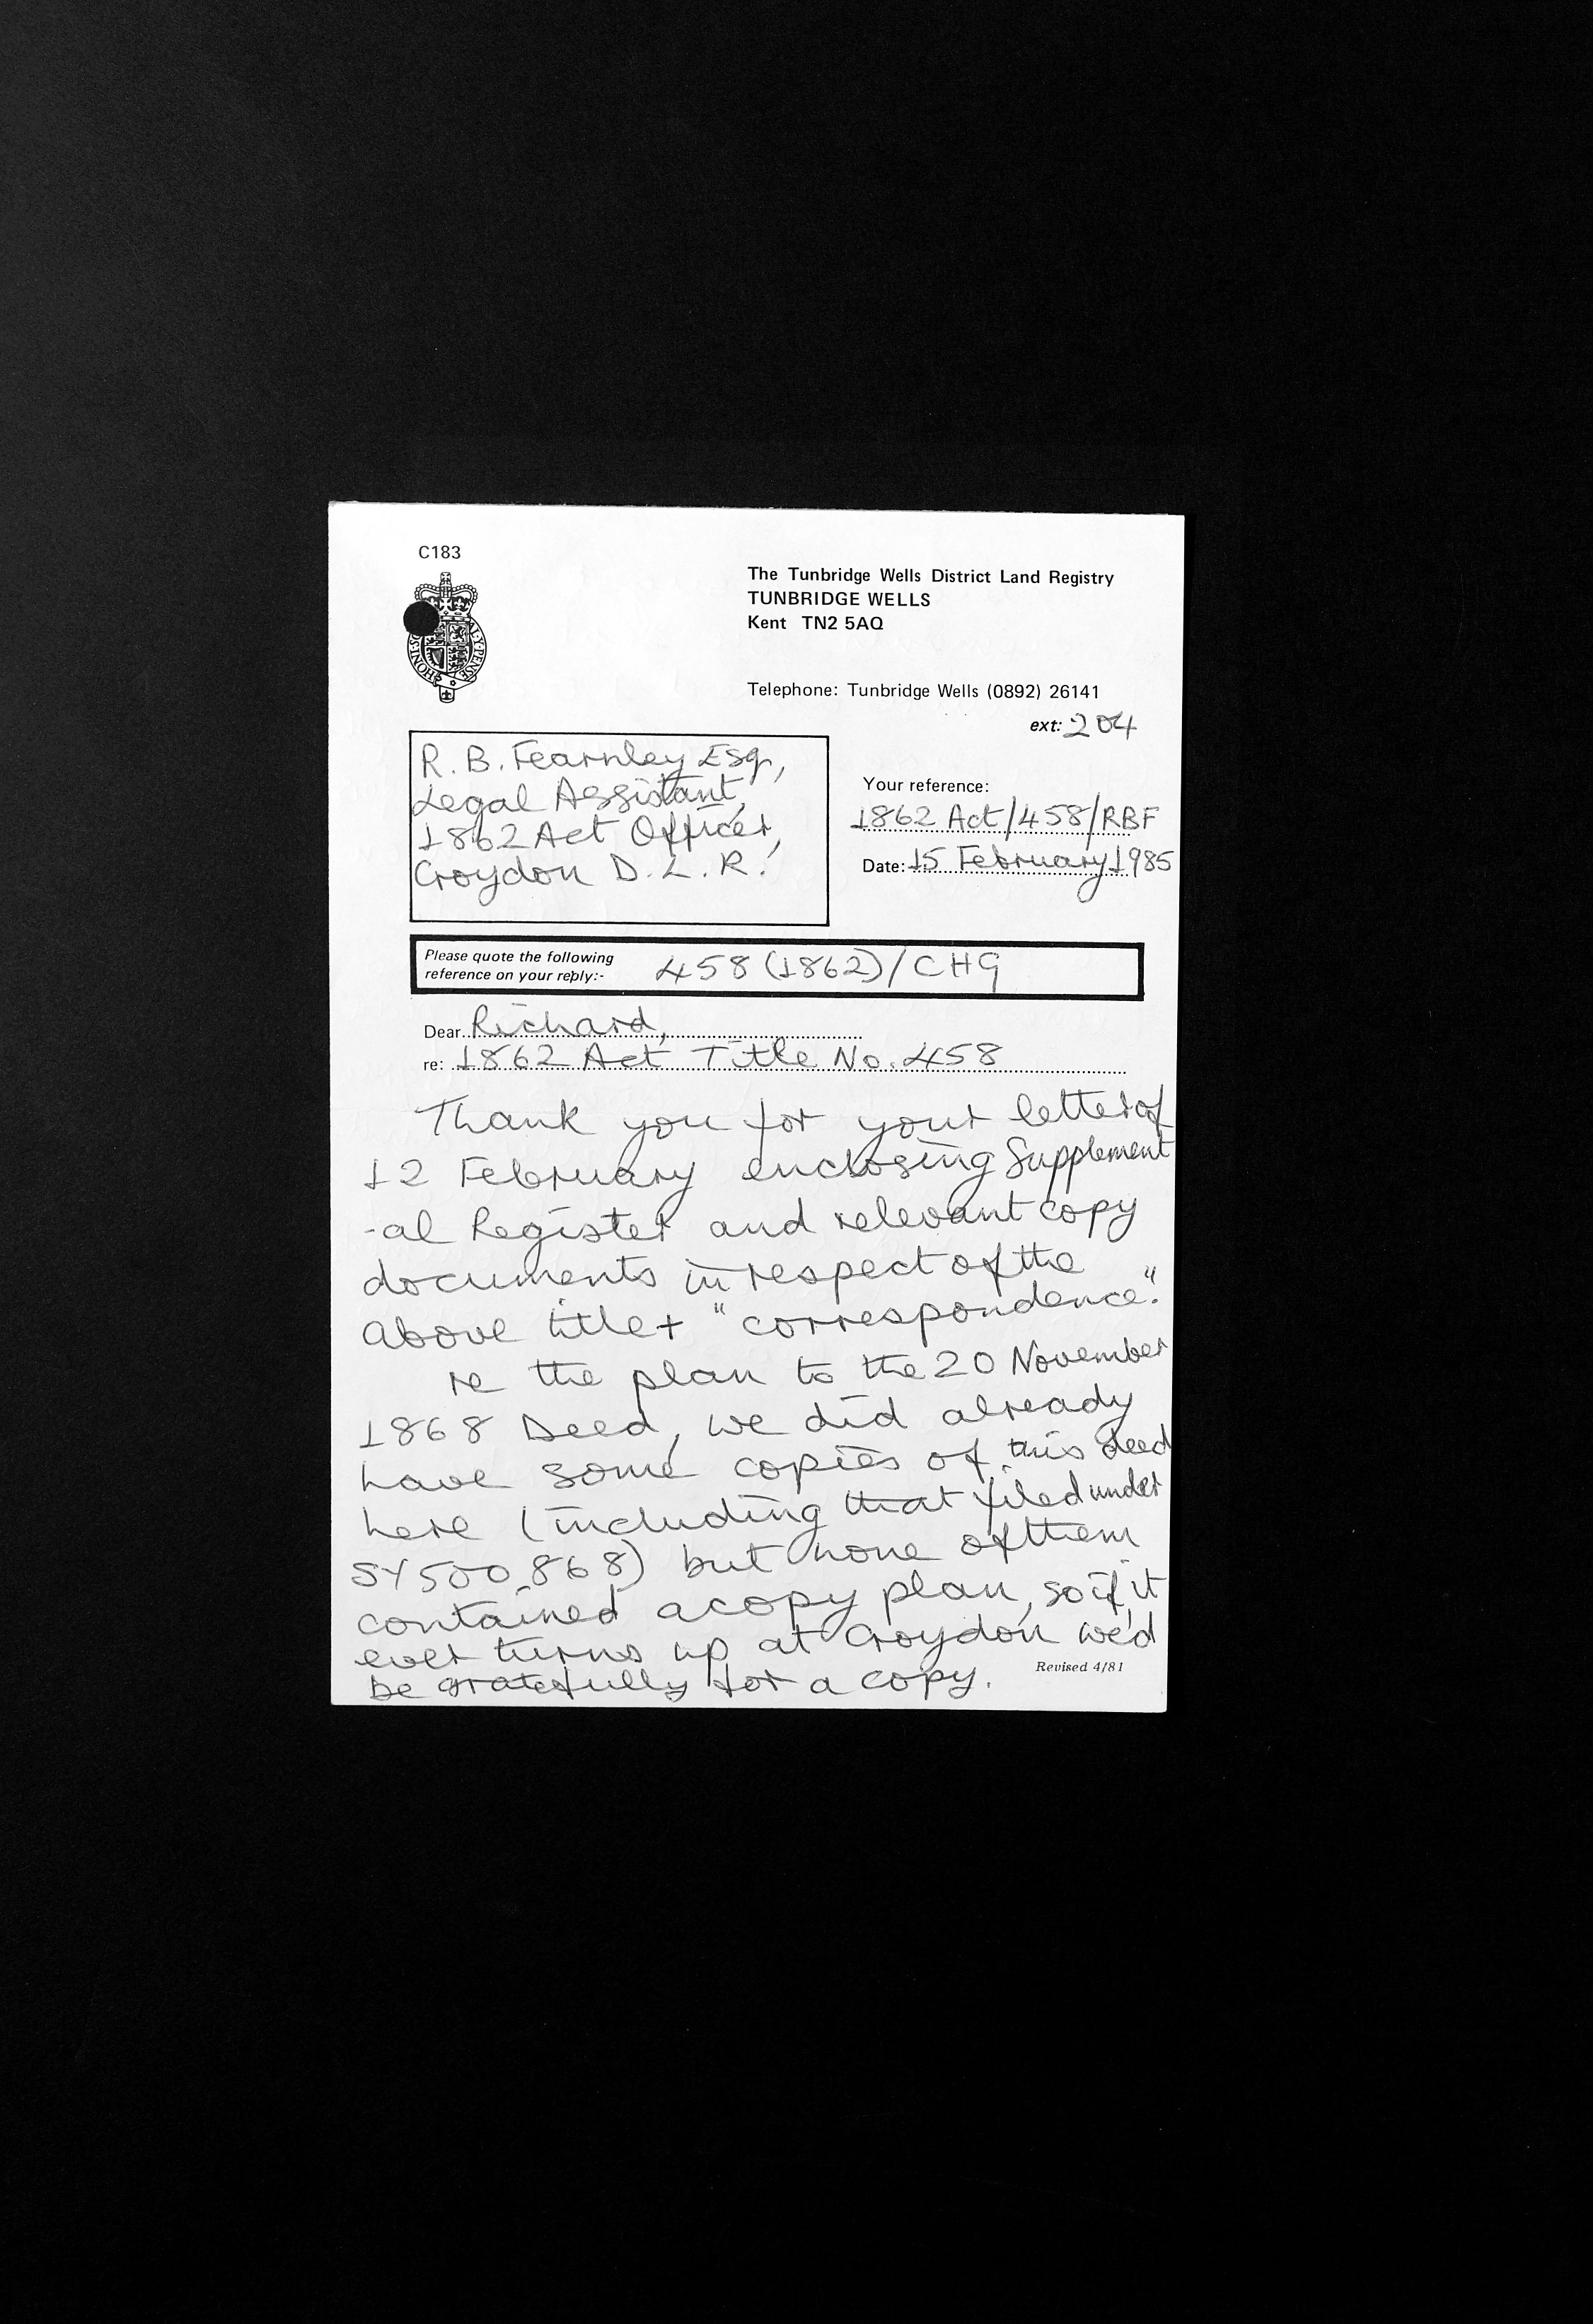 C183
The Tunbridge Wells District Land Registry
TUNBRIDGE WELLS
Kent TN2 5AQ
HONI·SO
Y·PENSE
Telephone: Tunbridge Wells (0892) 26141
ext: 204
R. B. Fearnley Esq,
Legal Assistant,
1862 Act Officer,
Croydon D. L. R.
Your reference:
1862 Act/458/RBF
Date: 15 February 1985
Please quote the following
reference on your reply:-
458 (1862)/CHG
Dear Richard,
re: 1862 Act Title No. 458
Thank you for your letter of
12 February enclosing Supplement
-al Register and relevant copy
documents in respect of the
above title + "correspondence".
re the plan to the 20 November
1868 Deed, we did already
have some copies of this deed
here (including that filed under
SY500868) but none of them
contained a copy plan, so if it
ever turns up at Croydon we'd
be gratefully for a copy.
Revised 4/81